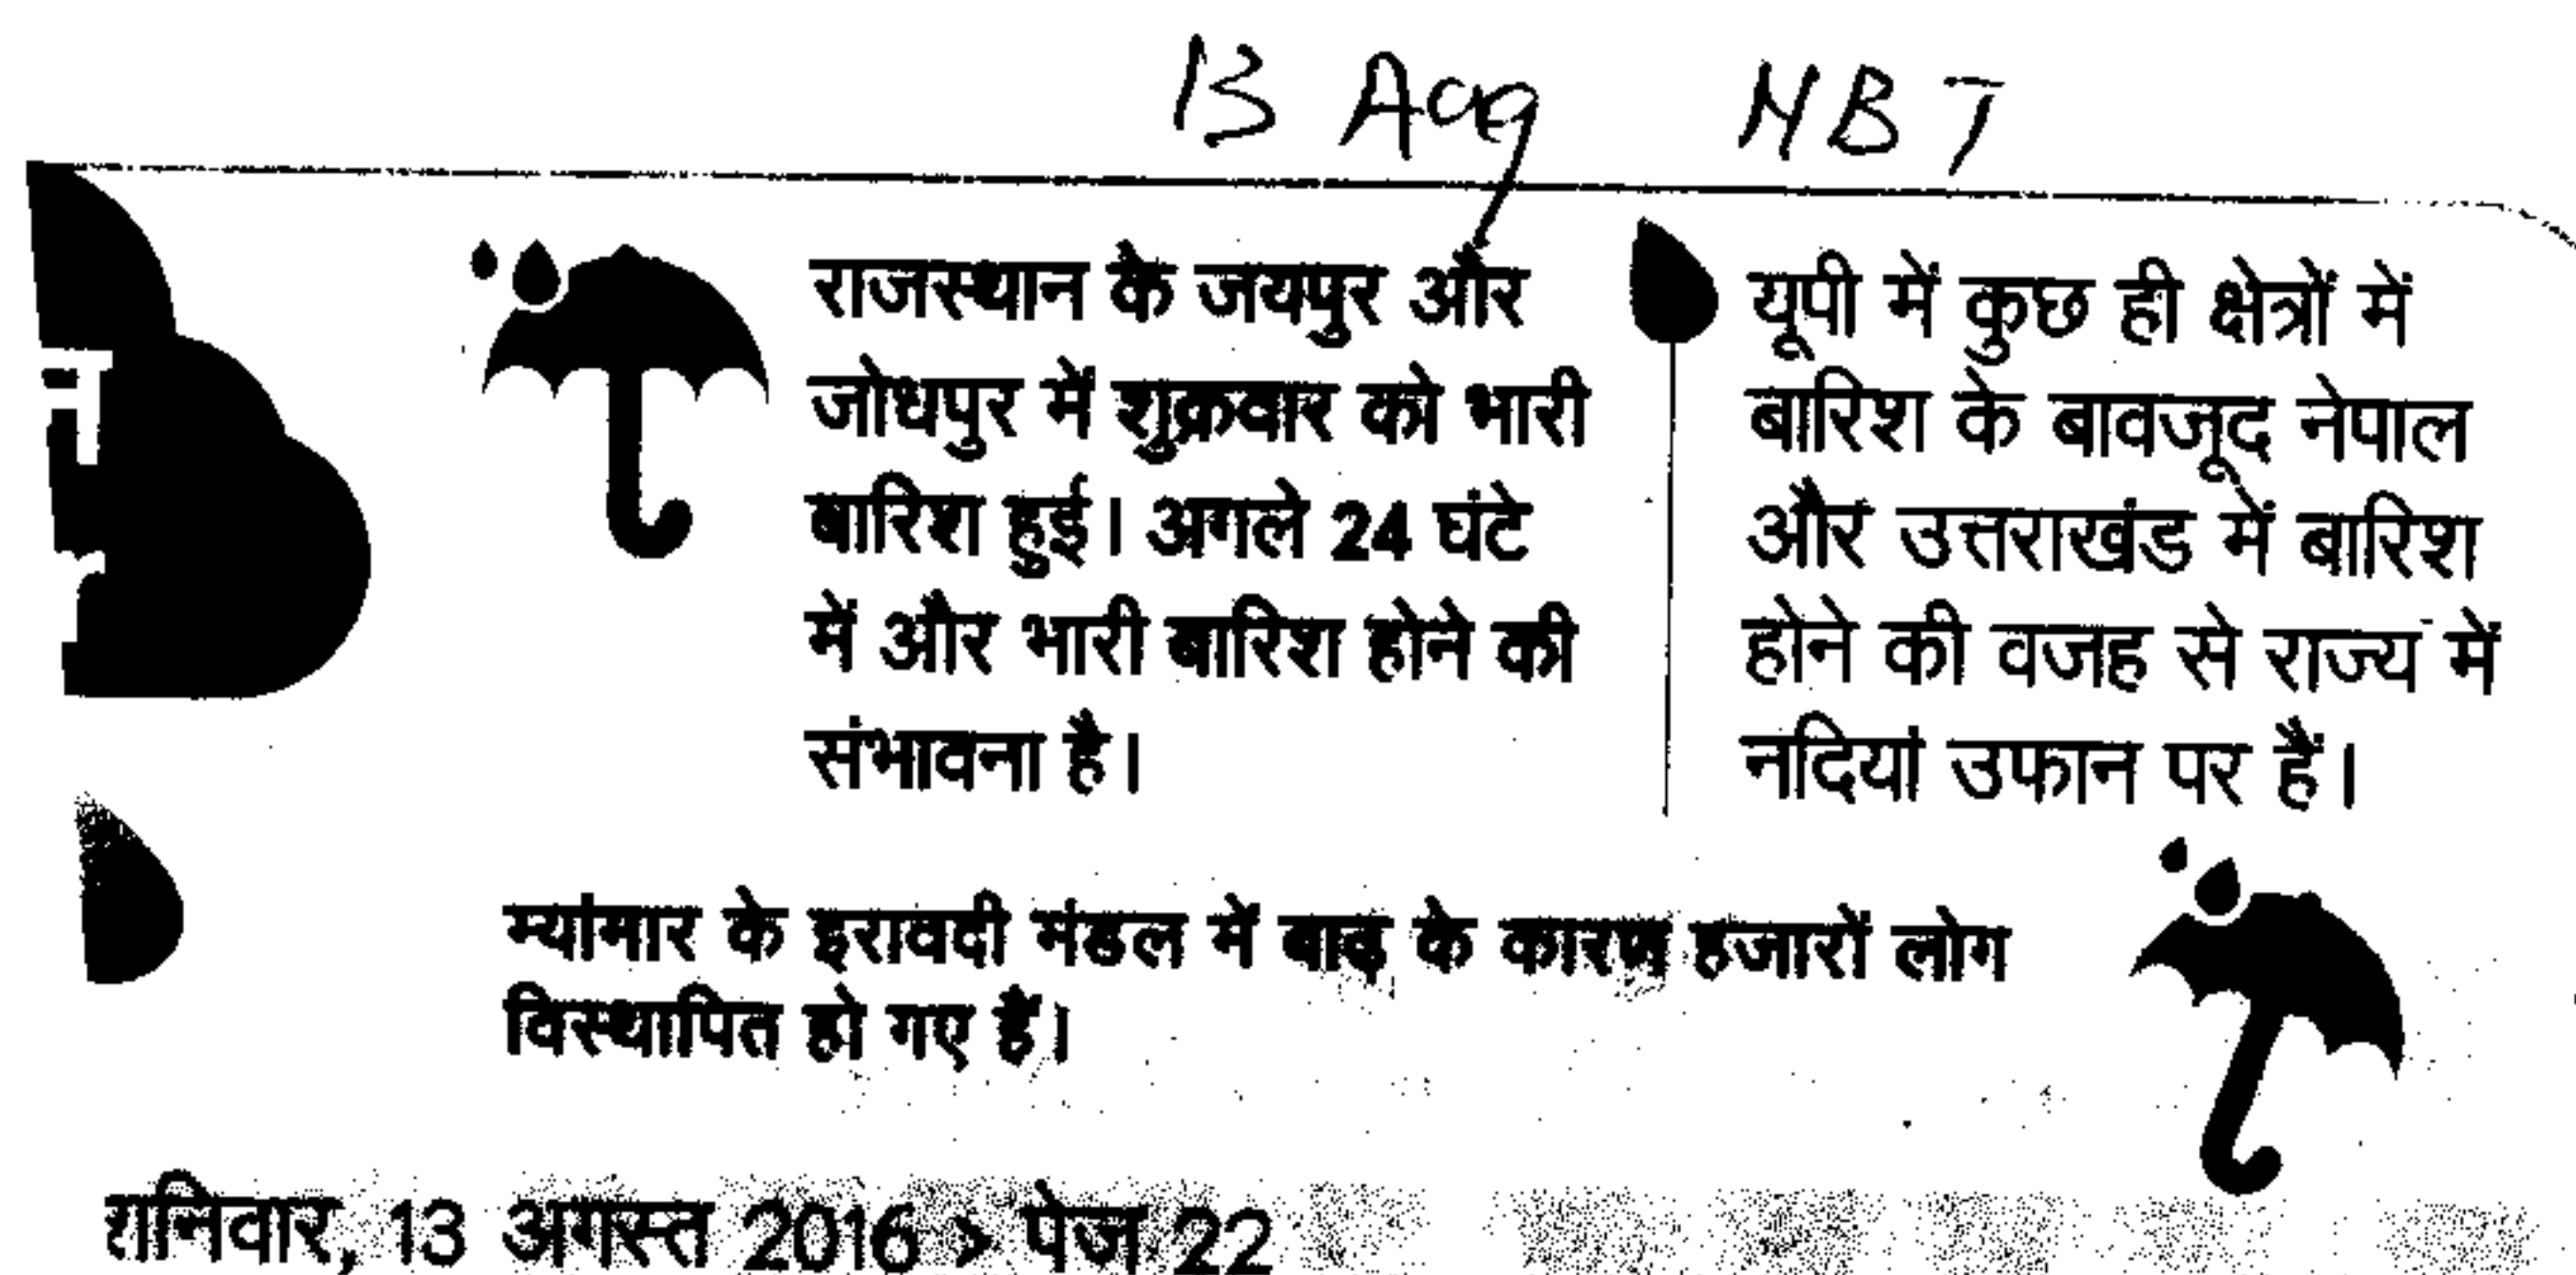 13 Aug NBT
राजस्थान के जयपुर और
जोधपुर में शुक्रवार को भारी
बारिश हुई। अगले 24 घंटे
में और भारी बारिश होने की
संभावना है।
यूपी में कुछ ही क्षेत्रों में
बारिश के बावजूद नेपाल
और उत्तराखंड में बारिश
होने की वजह से राज्य में
नदियां उफान पर हैं।
म्यांमार के इरावदी मंडल में बाढ़ के कारण हजारों लोग
विस्थापित हो गए हैं।
शनिवार, 13 अगस्त 2016 > पेज 22